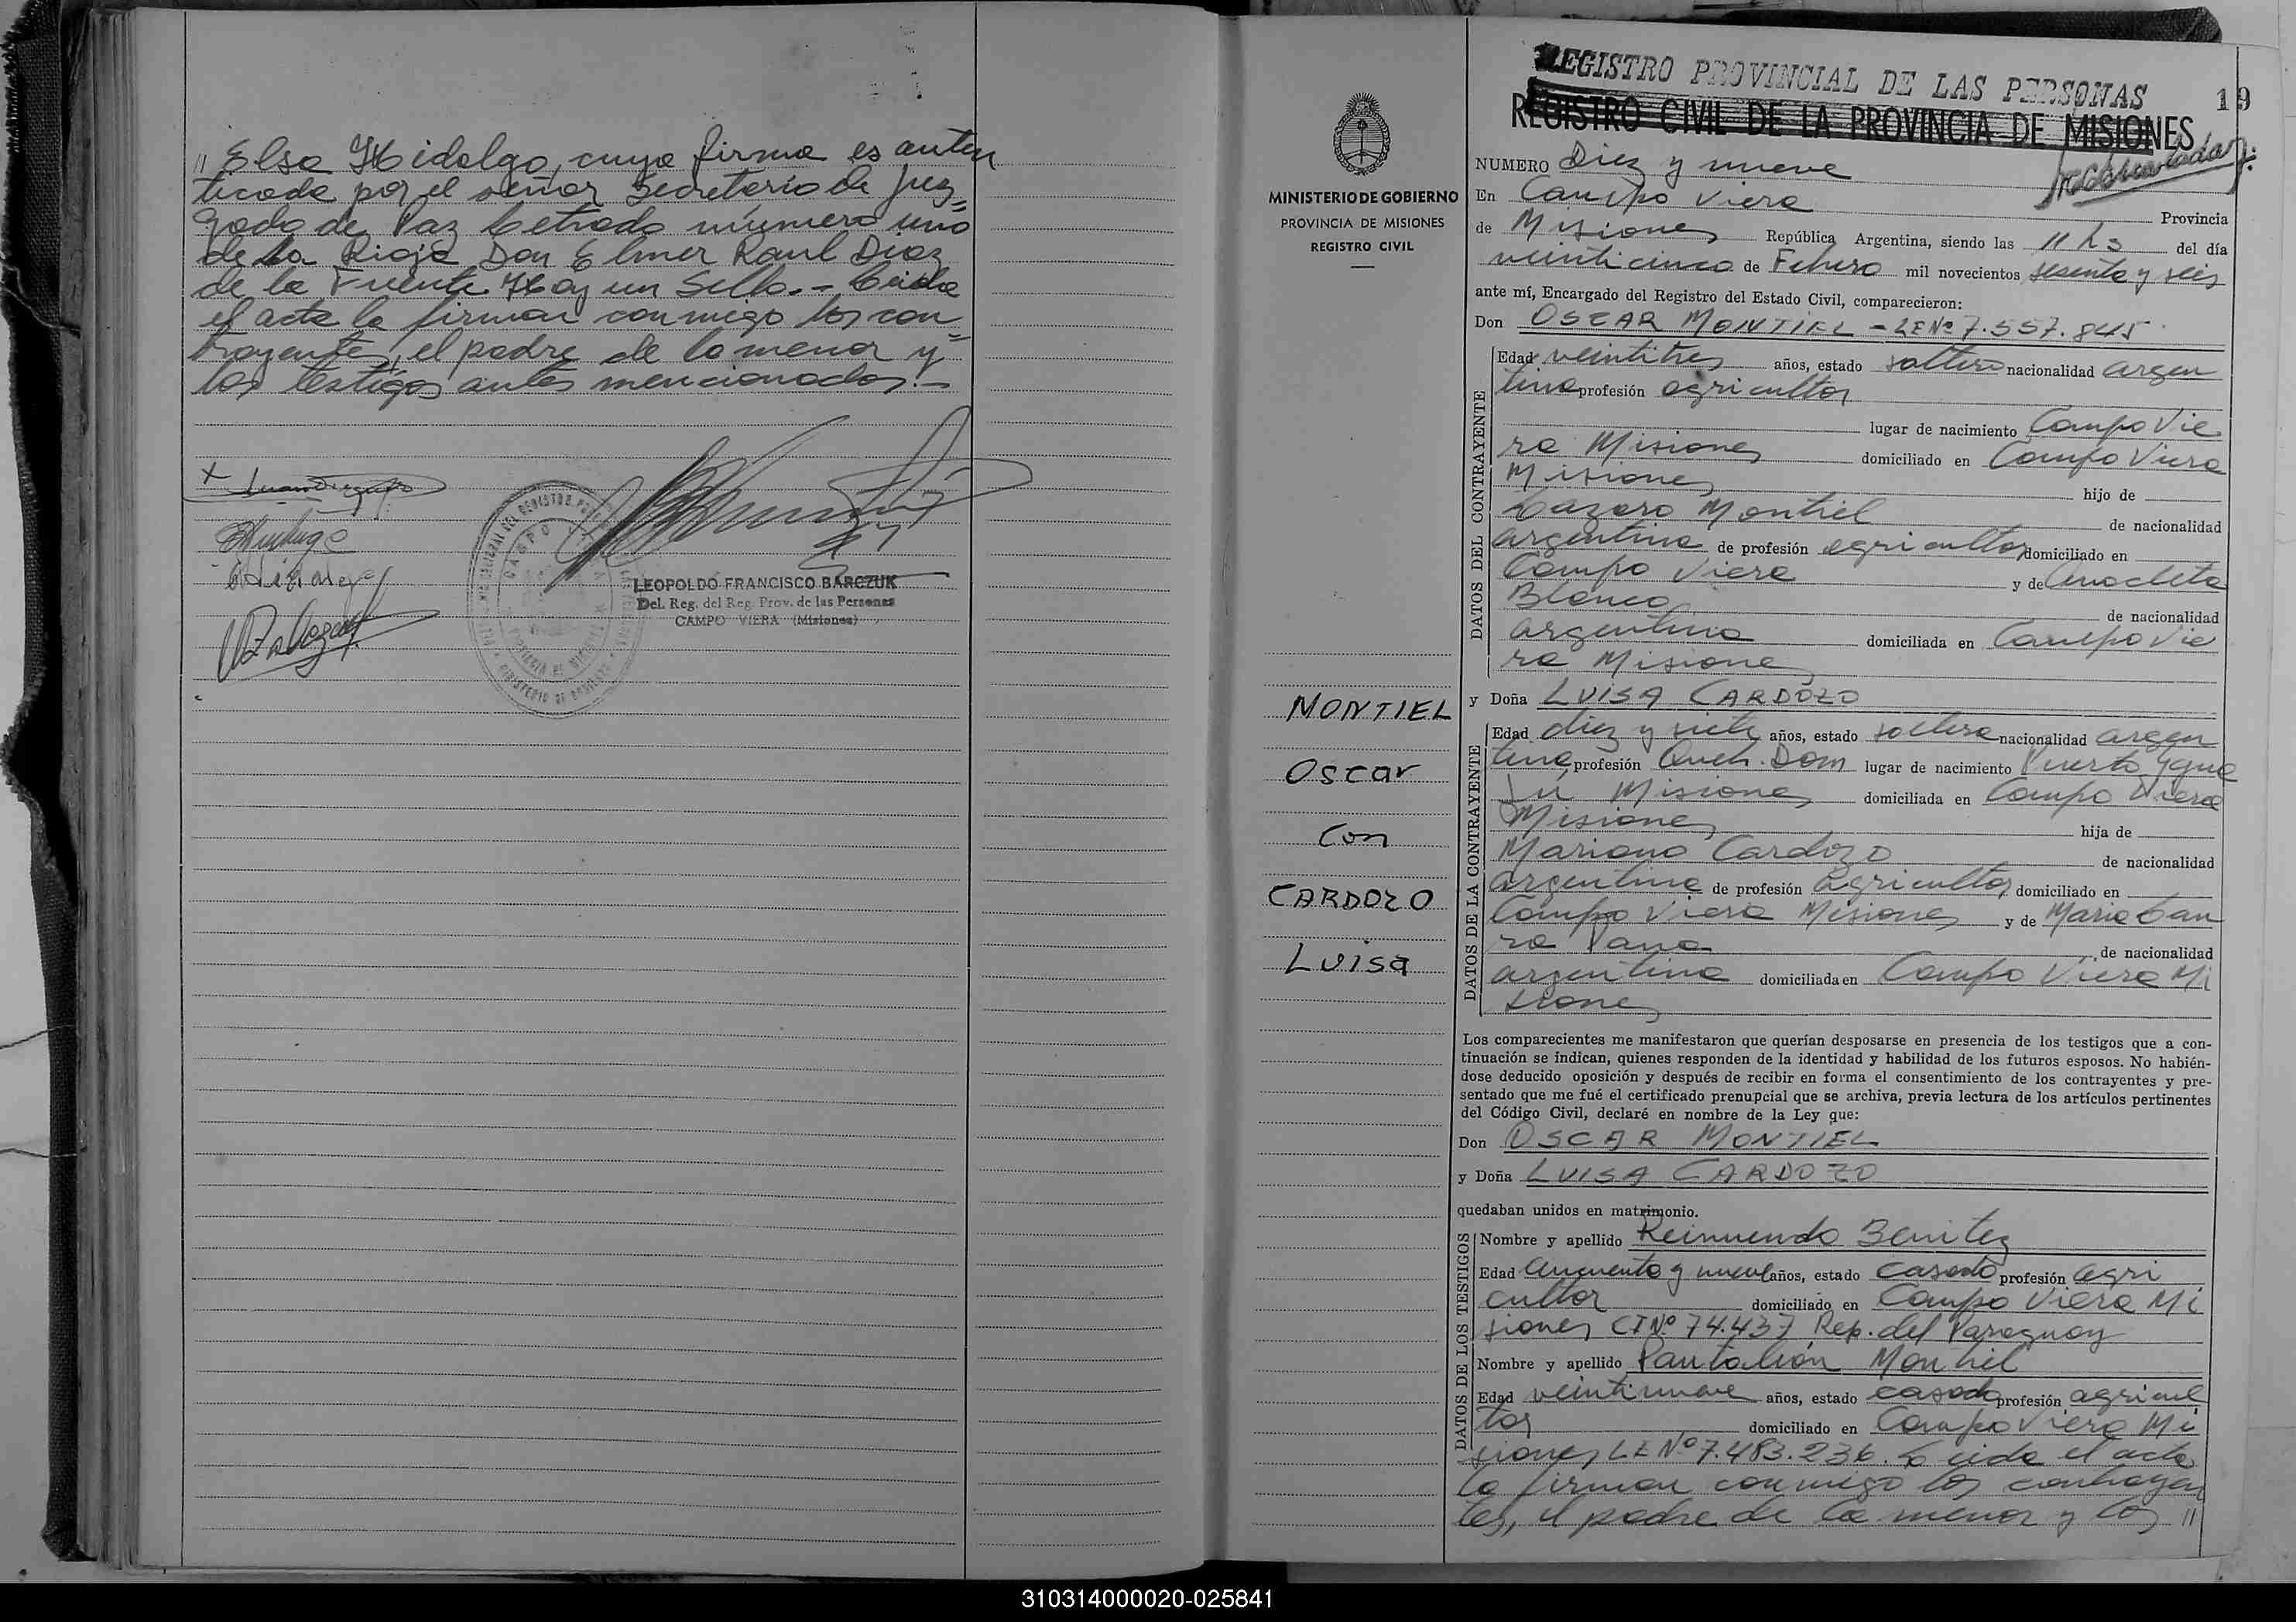 " Elsa Hidalgo, cuya firma es auten
ticada por el señor Secretario de Juz=
gado de Paz Letrado número uno
de La Rioja Don Elmer Raul Diaz
de la Fuente. Hay un Sello.- Leida
el acta la firman conmigo los con=
trayentes, el padre de la menor y
los testigos antes mencionados.-
LEOPOLDO FRANCISCO BARCZUK
Del. Reg. del Reg. Prov. de las Personas
CAMPO VIERA (Misiones)
MINISTERIO DE GOBIERNO
PROVINCIA DE MISIONES
REGISTRO CIVIL
MONTIEL
Oscar
Con
CARDOZO
Luisa
REGISTRO PROVINCIAL DE LAS PERSONAS
19
REGISTRO CIVIL DE LA PROVINCIA DE MISIONES
NUMERO Diez y nueve
En Campo Viera
Provincia
de Misiones República Argentina, siendo las 11 hs del día
veinticinco de Febrero mil novecientos sesenta y seis
ante mí, Encargado del Registro del Estado Civil, comparecieron:
Don OSCAR MONTIEL - LE Nº 7.557.845
DATOS DEL CONTRAYENTE
Edad veintitres años, estado soltero nacionalidad argen
tina profesión agricultor
lugar de nacimiento Campo Vie
ra Misiones domiciliado en Campo Viera
Misiones hijo de
Lazaro Montiel de nacionalidad
argentina de profesión agricultor domiciliado en
Campo Viera y de Anacleta
Blanco de nacionalidad
argentina domiciliada en Campo Vie
ra Misiones
y Doña LUISA CARDOZO
DATOS DE LA CONTRAYENTE
Edad diez y siete años, estado soltera nacionalidad argen
tina profesión Queh. Dom lugar de nacimiento Puerto Ygua
zú Misiones domiciliada en Campo Viera
Misiones hija de
Mariano Cardozo de nacionalidad
argentina de profesión agricultor domiciliado en
Campo Viera Misiones y de Maria Lau
ra de nacionalidad
argentina domiciliada en Campo Viera Mi
siones
Los comparecientes me manifestaron que querían desposarse en presencia de los testigos que a con-
tinuación se indican, quienes responden de la identidad y habilidad de los futuros esposos. No habién-
dose deducido oposición y después de recibir en forma el consentimiento de los contrayentes y pre-
sentado que me fué el certificado prenupcial que se archiva, previa lectura de los artículos pertinentes
del Código Civil, declaré en nombre de la Ley que:
Don OSCAR MONTIEL
y Doña LUISA CARDOZO
quedaban unidos en matrimonio.
DATOS DE LOS TESTIGOS
Nombre y apellido Reimundo Benitez
Edad cincuenta y nueve años, estado casado profesión agri
cultor domiciliado en Campo Viera Mi
siones CI Nº 74.437 Rep. del Paraguay
Nombre y apellido Pantalión Montiel
Edad veintinueve años, estado casado profesión agricul
tor domiciliado en Campo Viera Mi
siones LE Nº 7.483.236. Leida el acta
la firman conmigo los contrayen
tes, el padre de la menor y los "
310314000020-025841